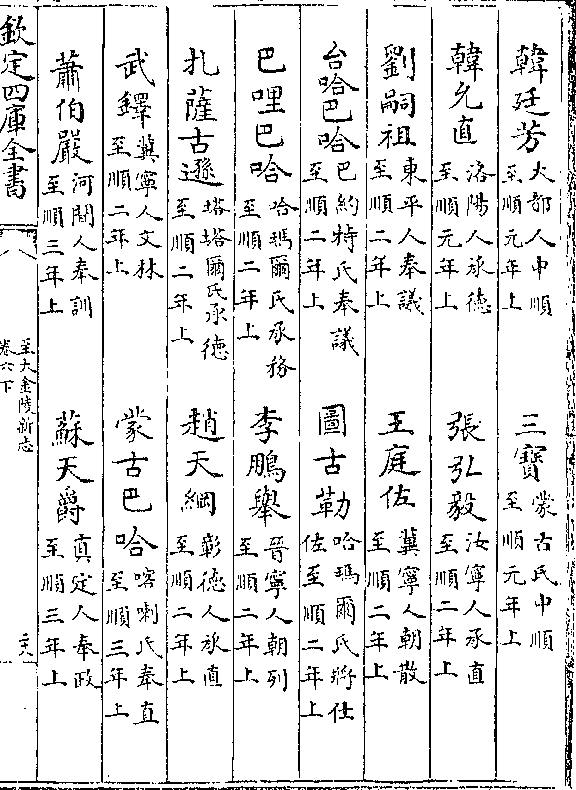 韓廷芳 大都人中順 至順元年上 三寶 蒙古氏中順 至順元年上
韓允直 洛陽人承德 至順元年上 張弘毅 汝寧人承直 至順二年上
劉嗣祖 東平人奉議 至順二年上 王庭佐 冀寧人朝散 至順二年上
台哈巴哈 巴約特氏奉議 至順二年上 圖古勒 哈瑪爾氏將仕 佐至順二年上
巴哩巴哈 哈瑪爾氏承務 至順二年上 李鵬舉 晉寧人朝列 至順二年上
扎薩古遜 塔塔爾氏承德 至順二年上 趙天綱 彰德人承直 至順二年上
武鐸 冀寧人文林 至順二年上 蒙古巴哈 喀喇氏奉直 至順三年上
蕭伯嚴 河間人奉訓 至順三年上 蘇天爵 真定人奉政 至順三年上
欽定四庫全書 至大金陵新志 卷六下 二十八